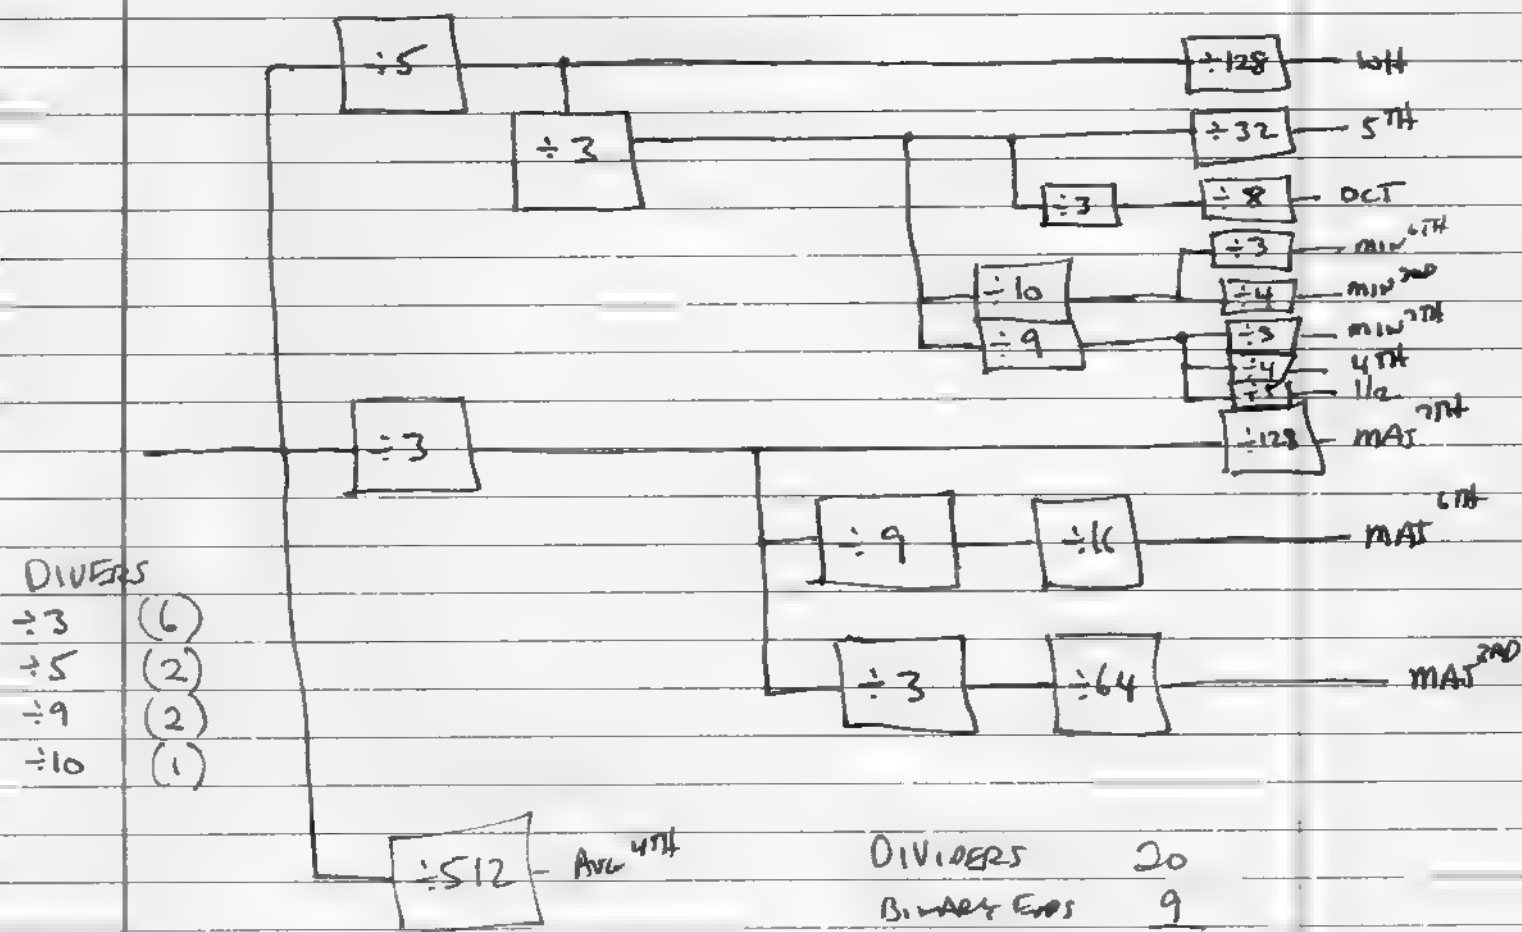 ÷5
÷128
÷3
÷32 5TH
÷3 ÷8 OCT
÷3 MIN 6TH
÷10 ÷4 MIN 2ND
÷9 ÷3 MIN 7TH
÷4 4TH
÷5
÷3 ÷128 MAJ 7TH
÷9 ÷16 MAJ 6TH
÷3 ÷64 MAJ 2ND
DIVERS
÷3 (6)
÷5 (2)
÷9 (2)
÷10 (1)
÷512 AUG 4TH
DIVIDERS 20
BINARY ENDS 9